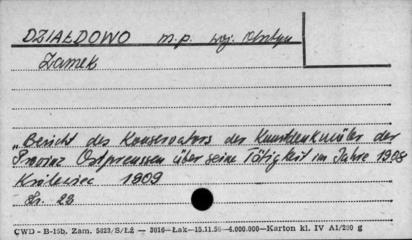 DZIAŁDOWO m.p. woj. Olsztyn
Zamek
„Bericht des Konservators der Kunstdenkmäler der
Provinz Ostpreussen über seine Tötigkeit im Jahre 1908
Królewiec 1909
Str. 29
CWD - B-15b. Zam. 5823/S/ŁŻ — 3016—Łak—15.11.56—4.000.000—Karton kl. IV A1/200 g